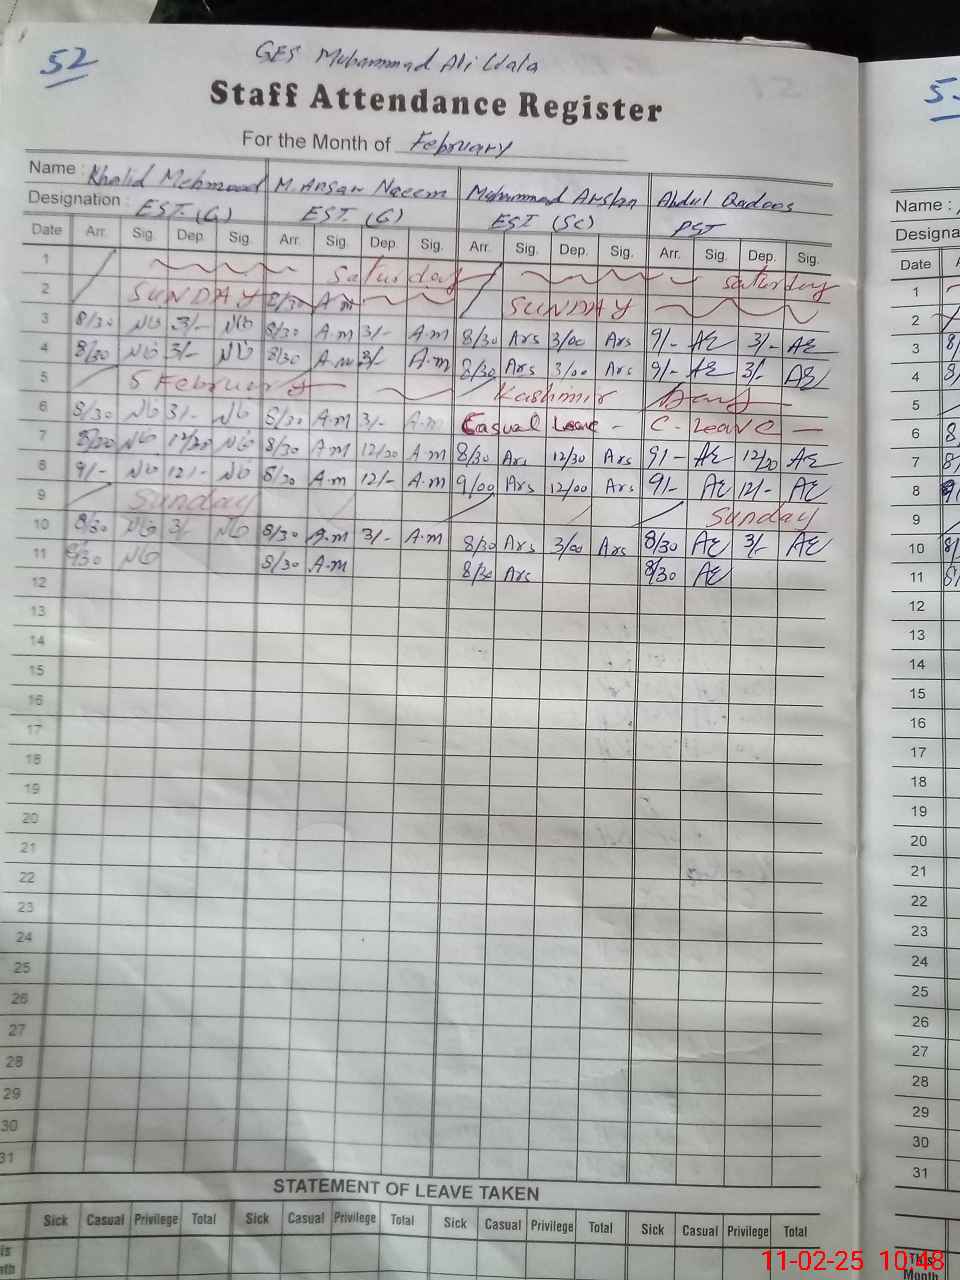 52
GES Muhammad Ali Wala
Staff Attendance Register
For the Month of February
Name : Khalid Mehmood M. Ansar Naeem Muhammad Arslan Abdul Qadoos
Designation : EST. (G) EST. (G) EST (SC) PST
Date Arr. Sig. Dep. Sig. Arr. Sig. Dep. Sig. Arr. Sig. Dep. Sig. Arr. Sig. Dep. Sig.
1 Saturday Saturday
2 SUNDAY 8/30 A.m SUNDAY
3 8/30 3/- 8/30 A.m 3/- A.m 8/30 Ars 3/00 Ars 9/- AE 3/- AE
4 8/30 3/- 8/30 A.m 3/- A.m 8/30 Ars 3/00 Ars 9/- AE 3/- AE
5 5 February Kashmir Day
6 8/30 3/- 8/30 A.m 3/- A.m Casual Leave - C. Leave -
7 8/30 12/30 8/30 A.m 12/30 A.m 8/30 Ars 12/30 Ars 9/- AE 12/30 AE
8 9/- 12/- 8/30 A.m 12/- A.m 9/00 Ars 12/00 Ars 9/- AE 12/- AE
9 Sunday Sunday
10 8/30 3/- 8/30 A.m 3/- A.m 8/30 Ars 3/00 Ars 8/30 AE 3/- AE
11 8/30 8/30 A.m 8/30 Ars 8/30 AE
12
13
14
15
16
17
18
19
20
21
22
23
24
25
26
27
28
29
30
31
STATEMENT OF LEAVE TAKEN
Sick Casual Privilege Total Sick Casual Privilege Total Sick Casual Privilege Total Sick Casual Privilege Total
Name :
Designa
Date
1
2
3
4
5
6
7
8
9
10
11
12
13
14
15
16
17
18
19
20
21
22
23
24
25
26
27
28
29
30
31
This
Month
11-02-25 10:48